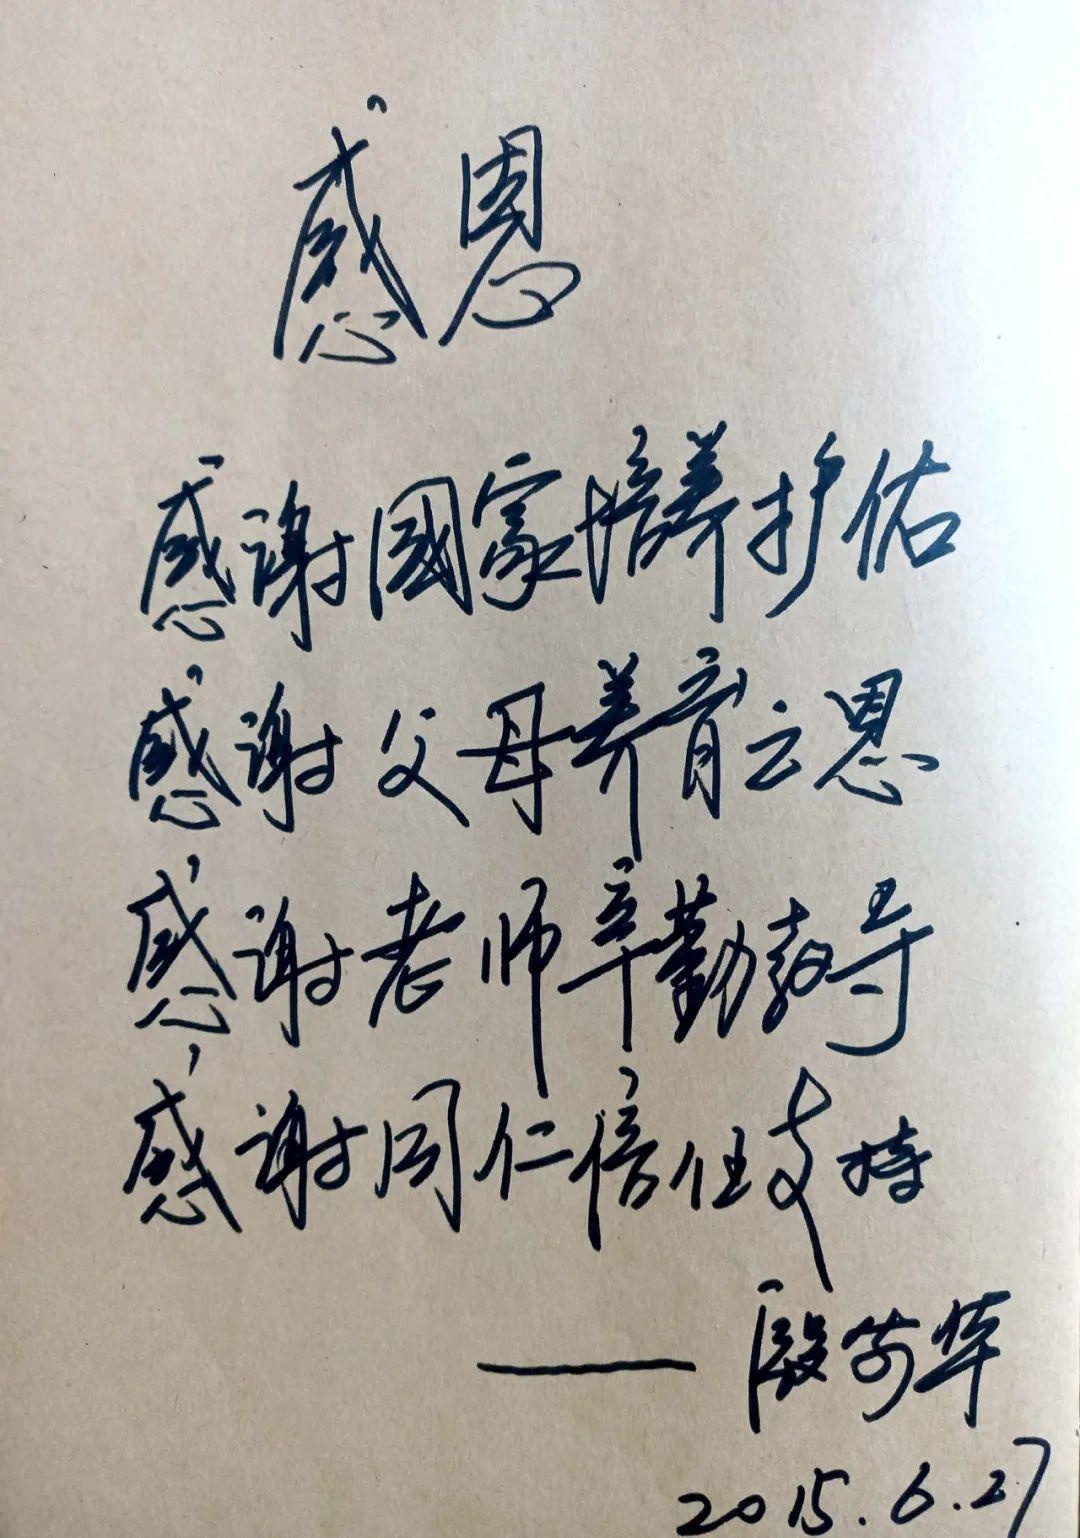 感恩
感谢國家培养护佑
感谢父母养育之恩
感谢老师辛勤教导
感谢同仁信任支持
—— 华
2015.6.27